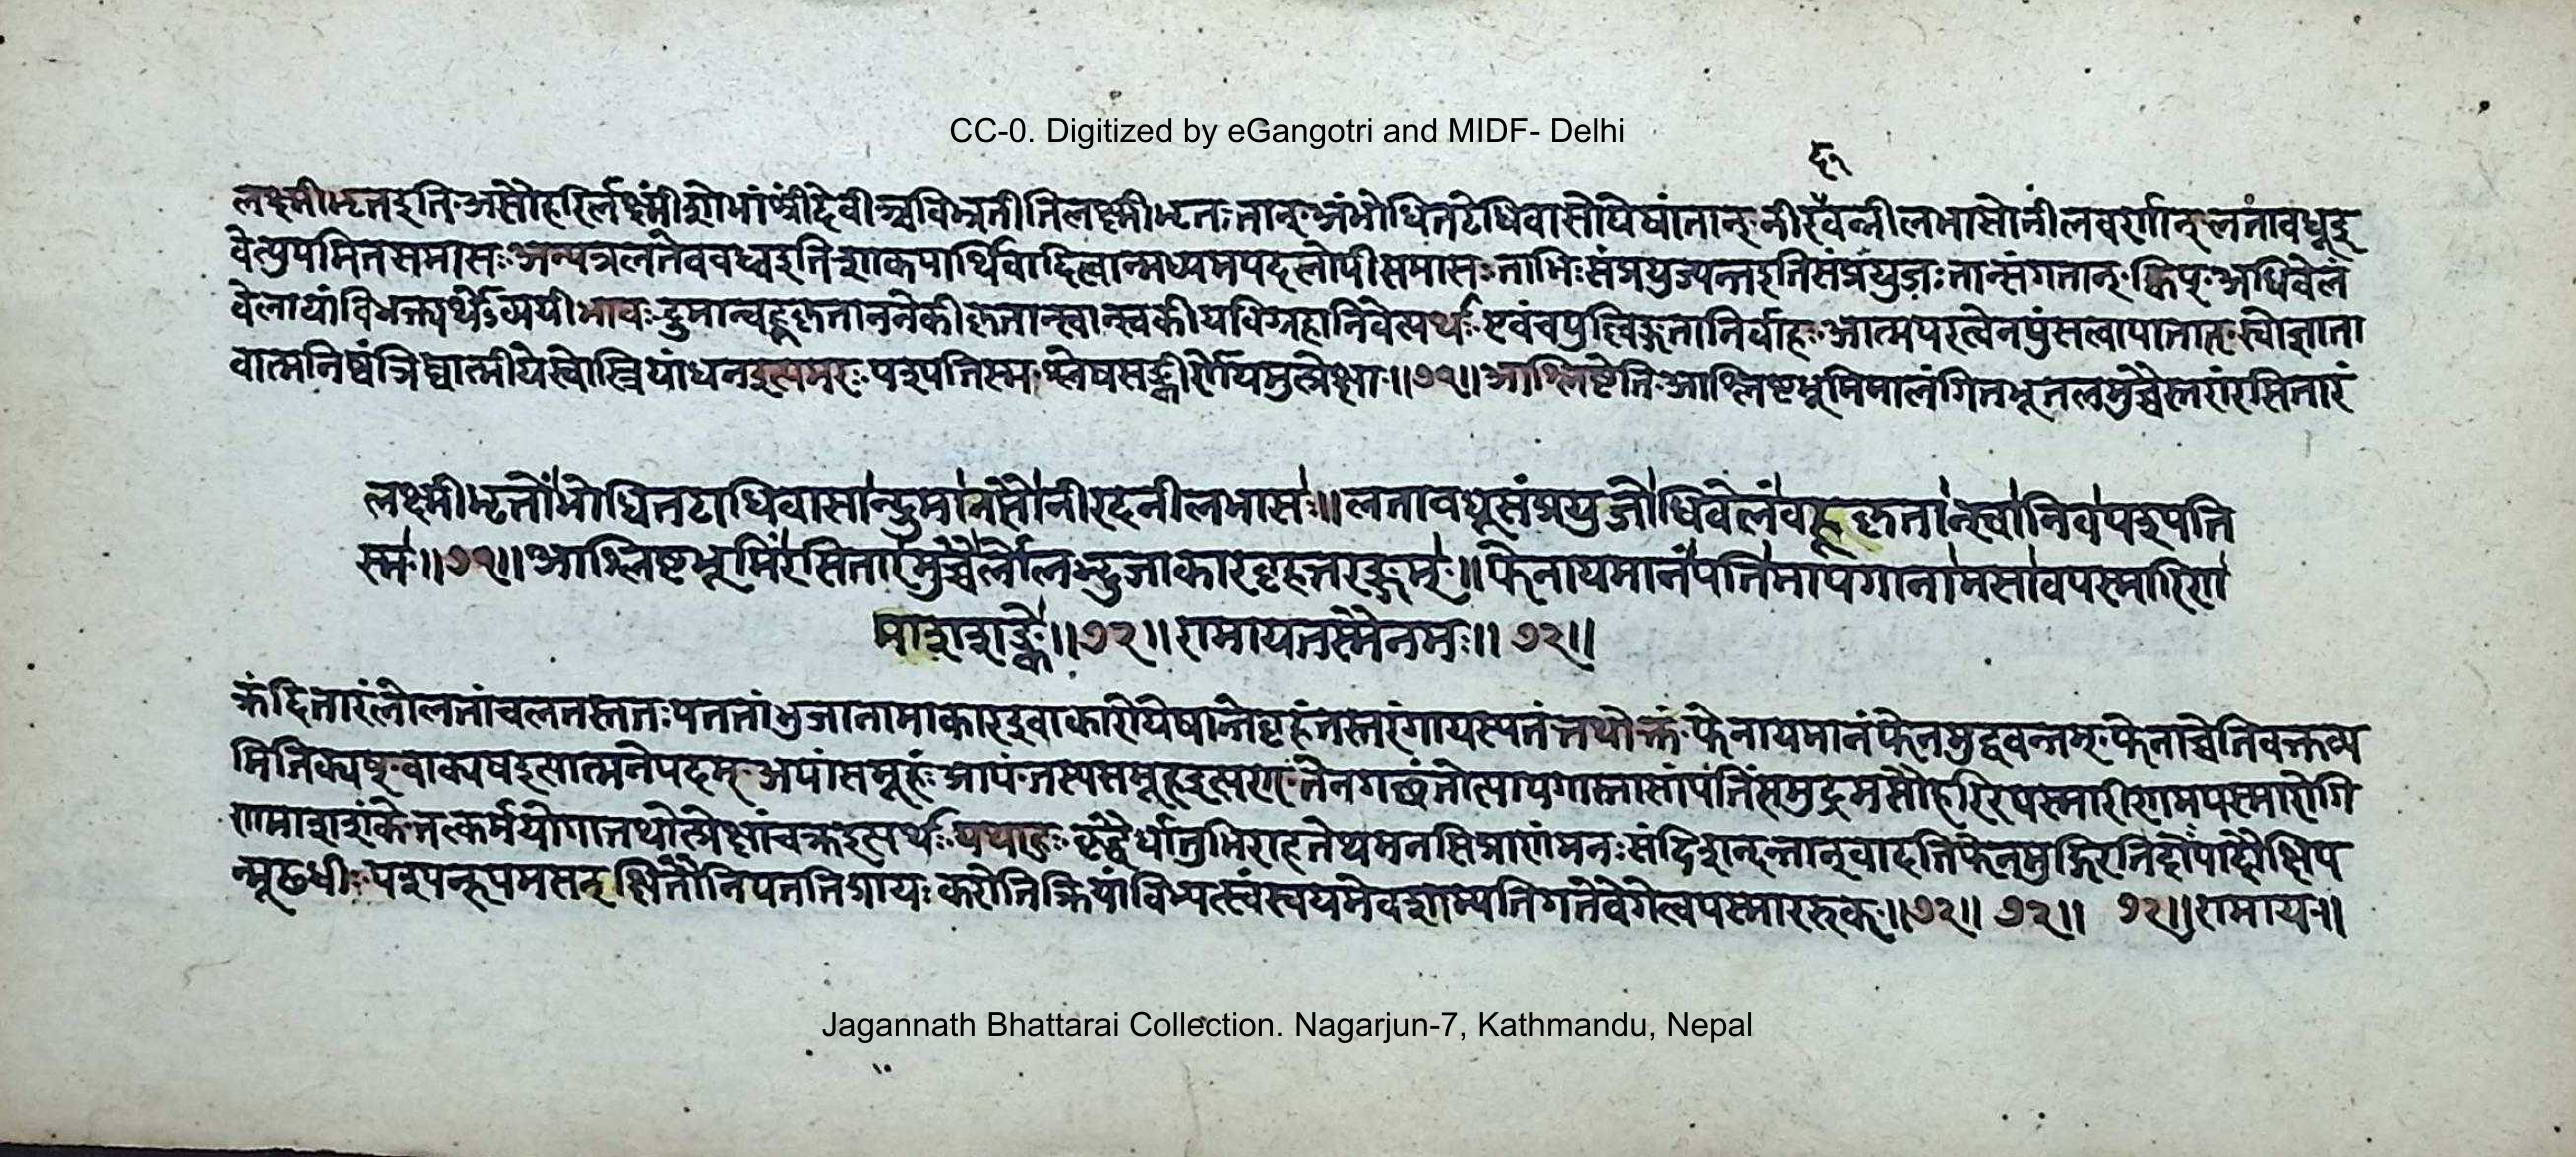 CC-0. Digitized by eGangotri and MIDF- Delhi
द१
लक्ष्मीभृतइति असौहरिर्लक्ष्मींशोभांश्रींदेवीञ्चबिभ्रतीतिलक्ष्मीभृतः तान् अंभोधितटेधिवासोयेषांतान् नीरवन्नीलभासोनीलवर्णान् लतावधूइ
वेत्युपमितसमासः अन्यत्रलतैववध्वइतिशाकपार्थिवादित्वान्मध्यमपदलोपीसमासः ताभिः संप्रयुज्यन्तइतिसंप्रयुजः तान्संगतान् क्विप् अधिवेलं
वेलायांविभक्त्यर्थेऽव्ययीभावः द्रुमान्वहूकृताननेकीकृतान्स्वान्स्वकीयविग्रहानिवेत्यर्थः एवंच आत्मपरत्वेनपुंस स्वोज्ञाता
वात्मनिष्वंत्रिष्वात्मीयेस्वोस्त्रियांधनइत्यमरः पश्यतिस्म श्लेषसङ्कीर्णेयमुत्प्रेक्षाः॥७१॥आश्लिष्टेति आश्लिष्टभूमिमालंगितभूतलमुच्चैस्तरांरसितारं
लक्ष्मीभृतोंभोधितटाधिवासान्द्रुमानसौनीरदनीलभासः॥लतावधूसंप्रयुजोधिवेलंवहूकृतान्स्वानिवपश्यति
स्म॥७१॥आश्लिष्टभूमिंरसितारमुच्चैर्लोलद्भुजाकारबृहत्तरङ्गम्॥फेनायमानंपतिमापगानामसावपस्मारिणा
माशशङ्के॥७२॥रामायतस्मैनमः॥ ७२॥
क्रंदितारंलोलतांचलतस्ततः पततांभुजानामाकारइवाकारोयेषान्तेबृहंतस्तरंगायस्यतंतथोक्तं फेनायमानंफेनमुद्वमन्तम् फेनाच्चेतिवक्तव्य
मितिक्यष् वाक्यषइत्यात्मनेपदम् अपांसमूहः आपं तस्यसमूहइत्यण् तेनगच्छंतीत्यापगास्तासांपतिंसमुद्रमसौहरिरपस्मारीणमपस्मारोगि
णमाशशंके तत्कर्मयोगात्तथोत्प्रेक्षांचक्रइत्यर्थः यथाहुः क्रुद्धैर्धातुभिराहतेथमनसिप्राणीमनः संदिशन्दन्तान्खादतिफेनमुद्गिरतिदोःपादौक्षिप
न्मूढधीः पश्यन्रूपमसत् क्षितौनिपतति करोतिक्रियां स्वयमेवशाम्यतिगतेवेगेत्वपस्माररुक्॥७२॥ ७२॥ ७२॥रामाय॥
Jagannath Bhattarai Collection. Nagarjun-7, Kathmandu, Nepal